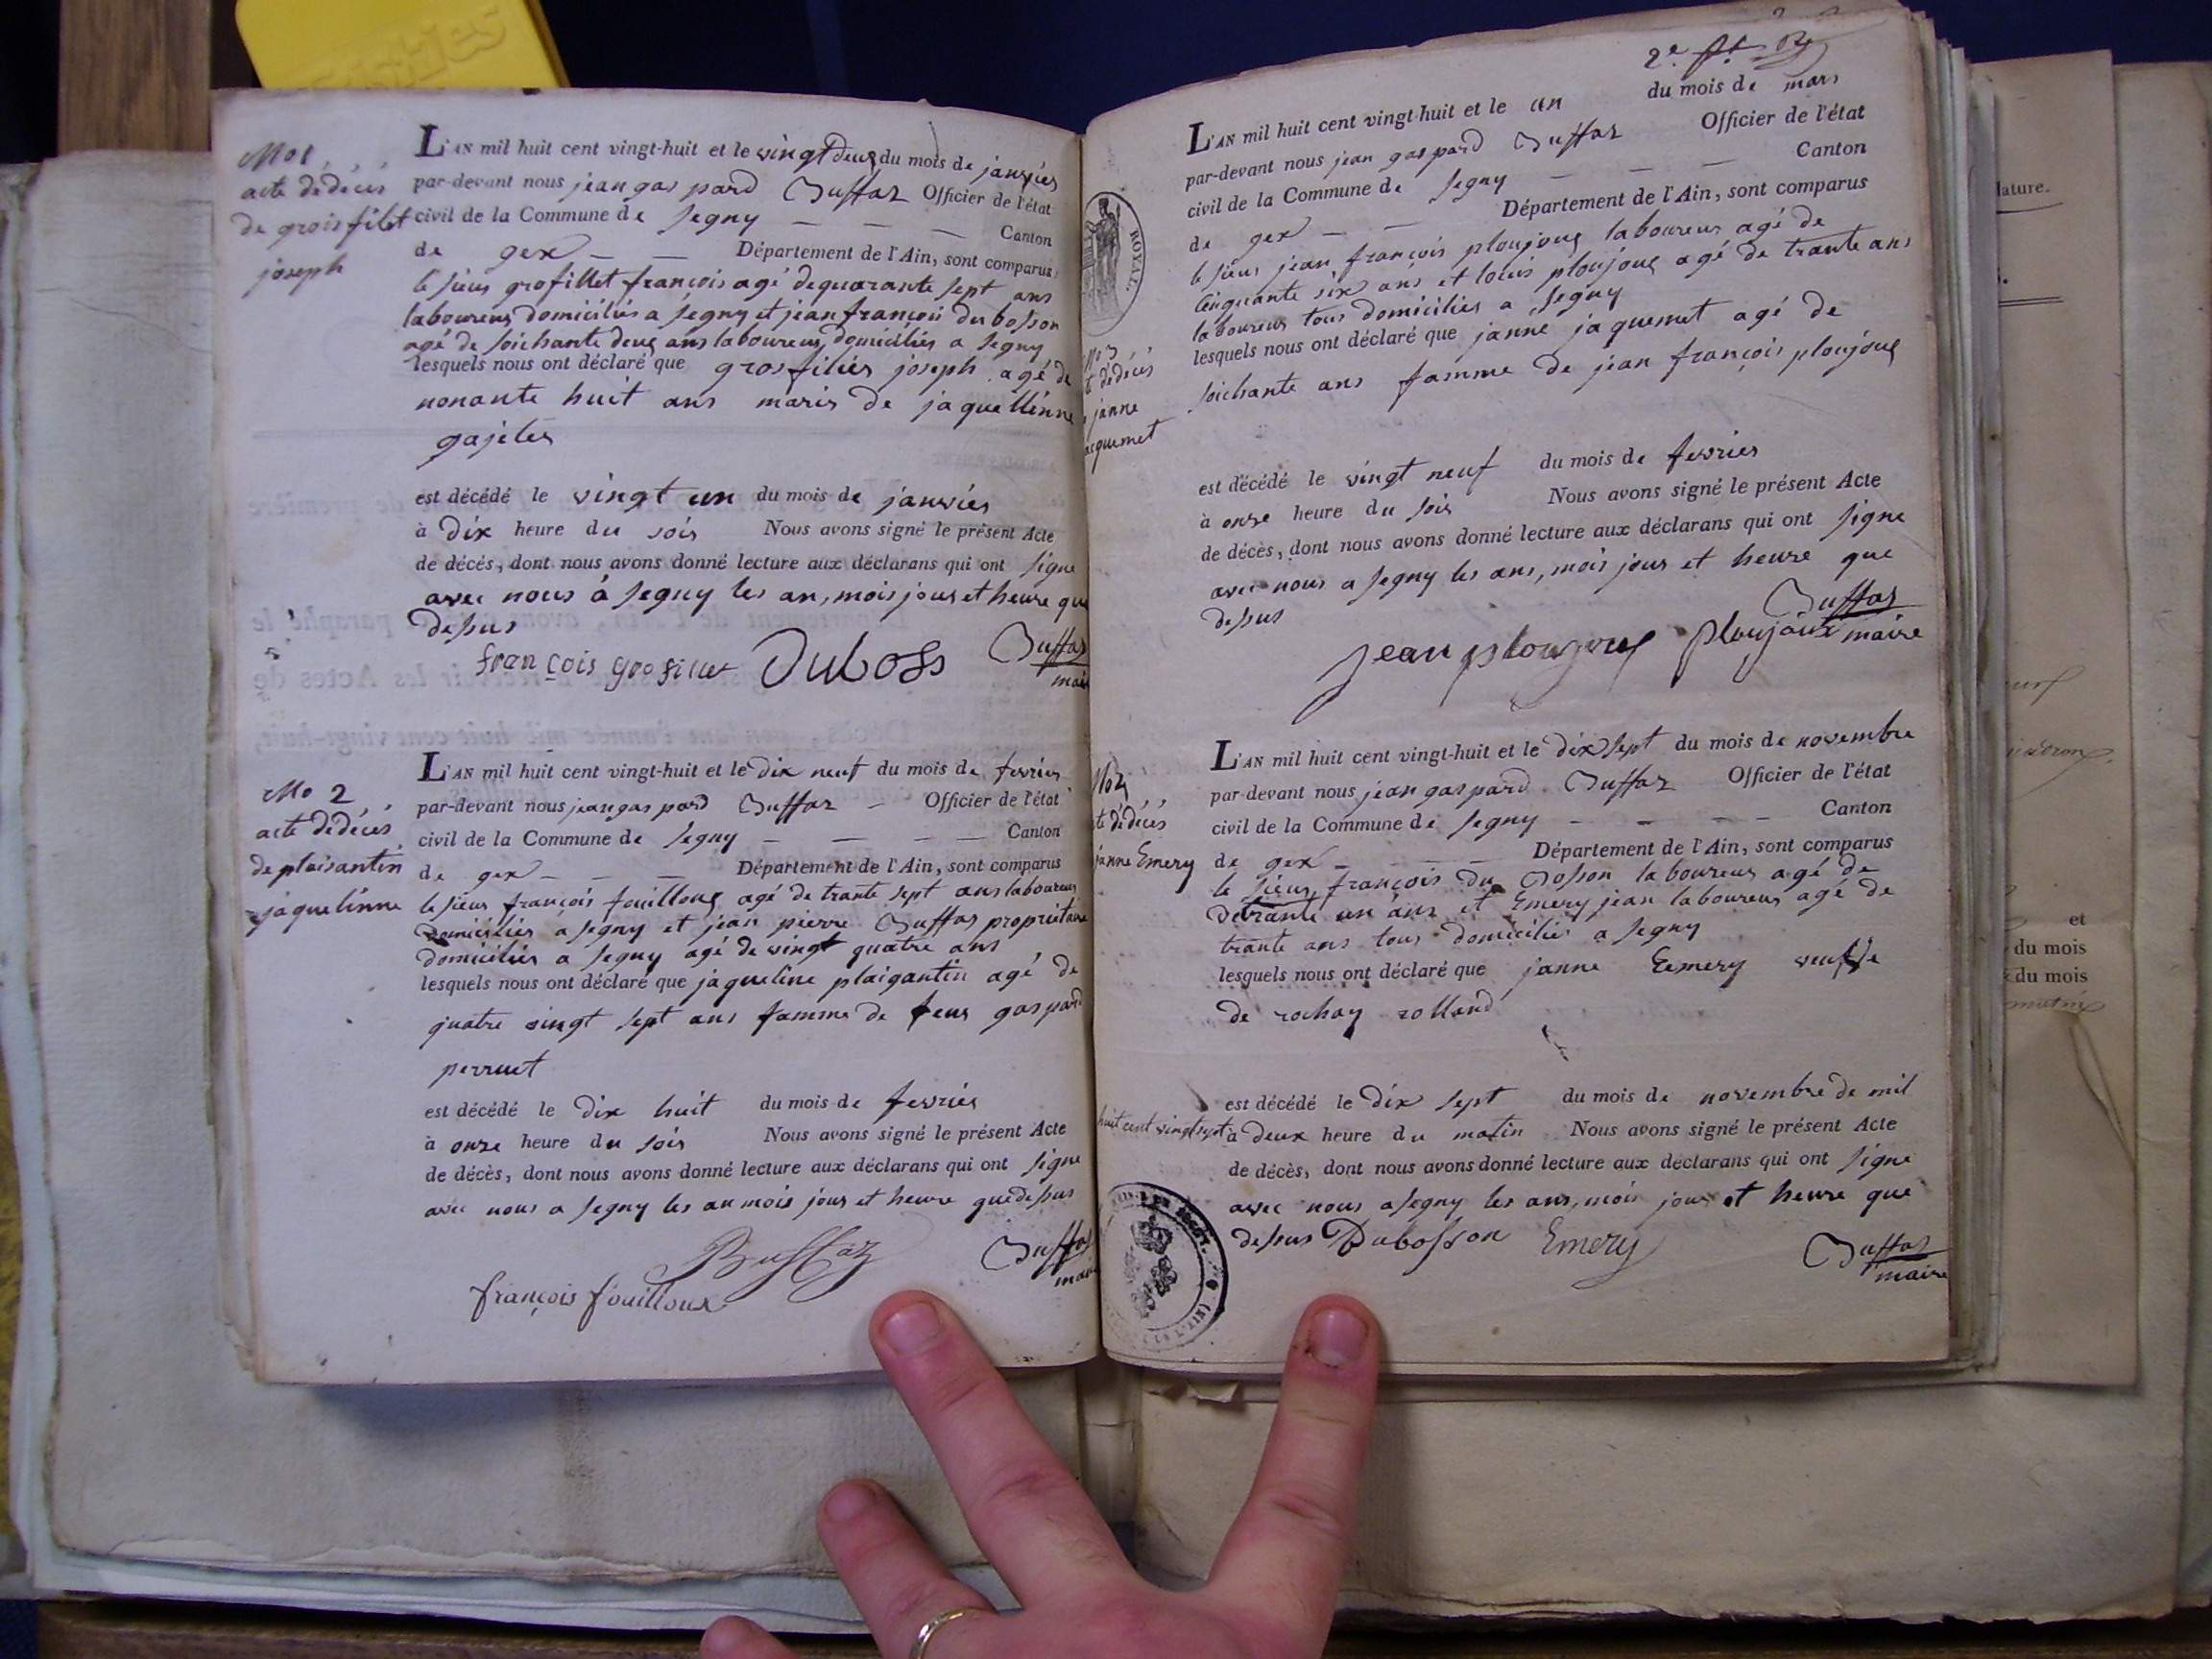 No 1
acte dédécés
de groisfilet
joseph
L'AN mil huit cent vingt-huit et le vingt deux du mois de janvier
par-devant nous jean gas pard Buffaz Officier de l'état
civil de la Commune de Segny — — — Canton
de gex — — Département de l'Ain, sont comparus
le sieur grofillet françois agé dequarante sept ans
laboureur domiciliés a segny et jean françois du bosson
agé de soichante deux ans laboureur domiciliés a segny
lesquels nous ont déclaré que grosfilier joseph agé de
nonante huit ans maris de jaquellinne
gajeles
est décédé le vingt un du mois de janvier
à dix heure du soir Nous avons signé le présent Acte
de décès, dont nous avons donné lecture aux déclarans qui ont signe
avec nous á segny les an, mois jour et heure que
dessus
françois grosfillet Duboss Buffaz
maire
No 2
acte dédécés
de plaisantin
jaquelinne
L'AN mil huit cent vingt-huit et le dix neuf du mois de fevrier
par-devant nous jean gas pard Buffaz — Officier de l'état
civil de la Commune de Segny — — — — Canton
de gex — — — Département de l'Ain, sont comparus
le sieur françois fouilloux agé de trante sept ans laboureur
domiciliés a segny et jean pierre Buffaz propriétaire
domiciliés a segny agé de vingt quatre ans
lesquels nous ont déclaré que jaqueline plaigantin agé de
quatre vingt sept ans famme de feux gaspard
perruet
est décédé le dix huit du mois de fevrier
à onze heure du soir Nous avons signé le présent Acte
de décès, dont nous avons donné lecture aux déclarans qui ont signe
avec nous a segny les an mois jour et heure que dessus
Buffaz Buffaz
françois fouilloux maire
2e ft
L'AN mil huit cent vingt-huit et le un du mois de mars
par-devant nous jean gas pard Buffaz Officier de l'état
civil de la Commune de Segny — — — Canton
de gex — — Département de l'Ain, sont comparus
le sieur jean françois ploujoux laboureur agé de
cinquante six ans et louis ploujoux agé de trante ans
laboureur tous domiciliés a segny
lesquels nous ont déclaré que janne jaquemet agé de
soichante ans famme de jean françois ploujoux
ROYAL.
No 3
te dédécés
janne
acquemet
est décédé le vingt neuf du mois de fevrier
à onze heure du soir Nous avons signé le présent Acte
de décès, dont nous avons donné lecture aux déclarans qui ont signe
avec nous a segny les ans, mois jour et heure que
dessus Buffaz
jean ploujoux ploujoux maire
No 4
te dédécés
janne Emery
L'AN mil huit cent vingt-huit et le dix sept du mois de novembre
par-devant nous jean gaspard Buffaz Officier de l'état
civil de la Commune de Segny — — — — Canton
de gex — — — Département de l'Ain, sont comparus
le sieur françois du Bosson laboureur agé de
detrante un ans et Emery jean laboureur agé de
trante ans tous domiciliés a segny
lesquels nous ont déclaré que janne Eemery
de rolland
est décédé le dix sept du mois de novembre de mil
huit cent vingt sept à deux heure du matin Nous avons signé le présent Acte
de décès, dont nous avons donné lecture aux déclarans qui ont signe
avec nous a segny les ans, mois jour et heure que
dessus Dubosson Emery Buffaz
maire
lature.
et
du mois
du mois